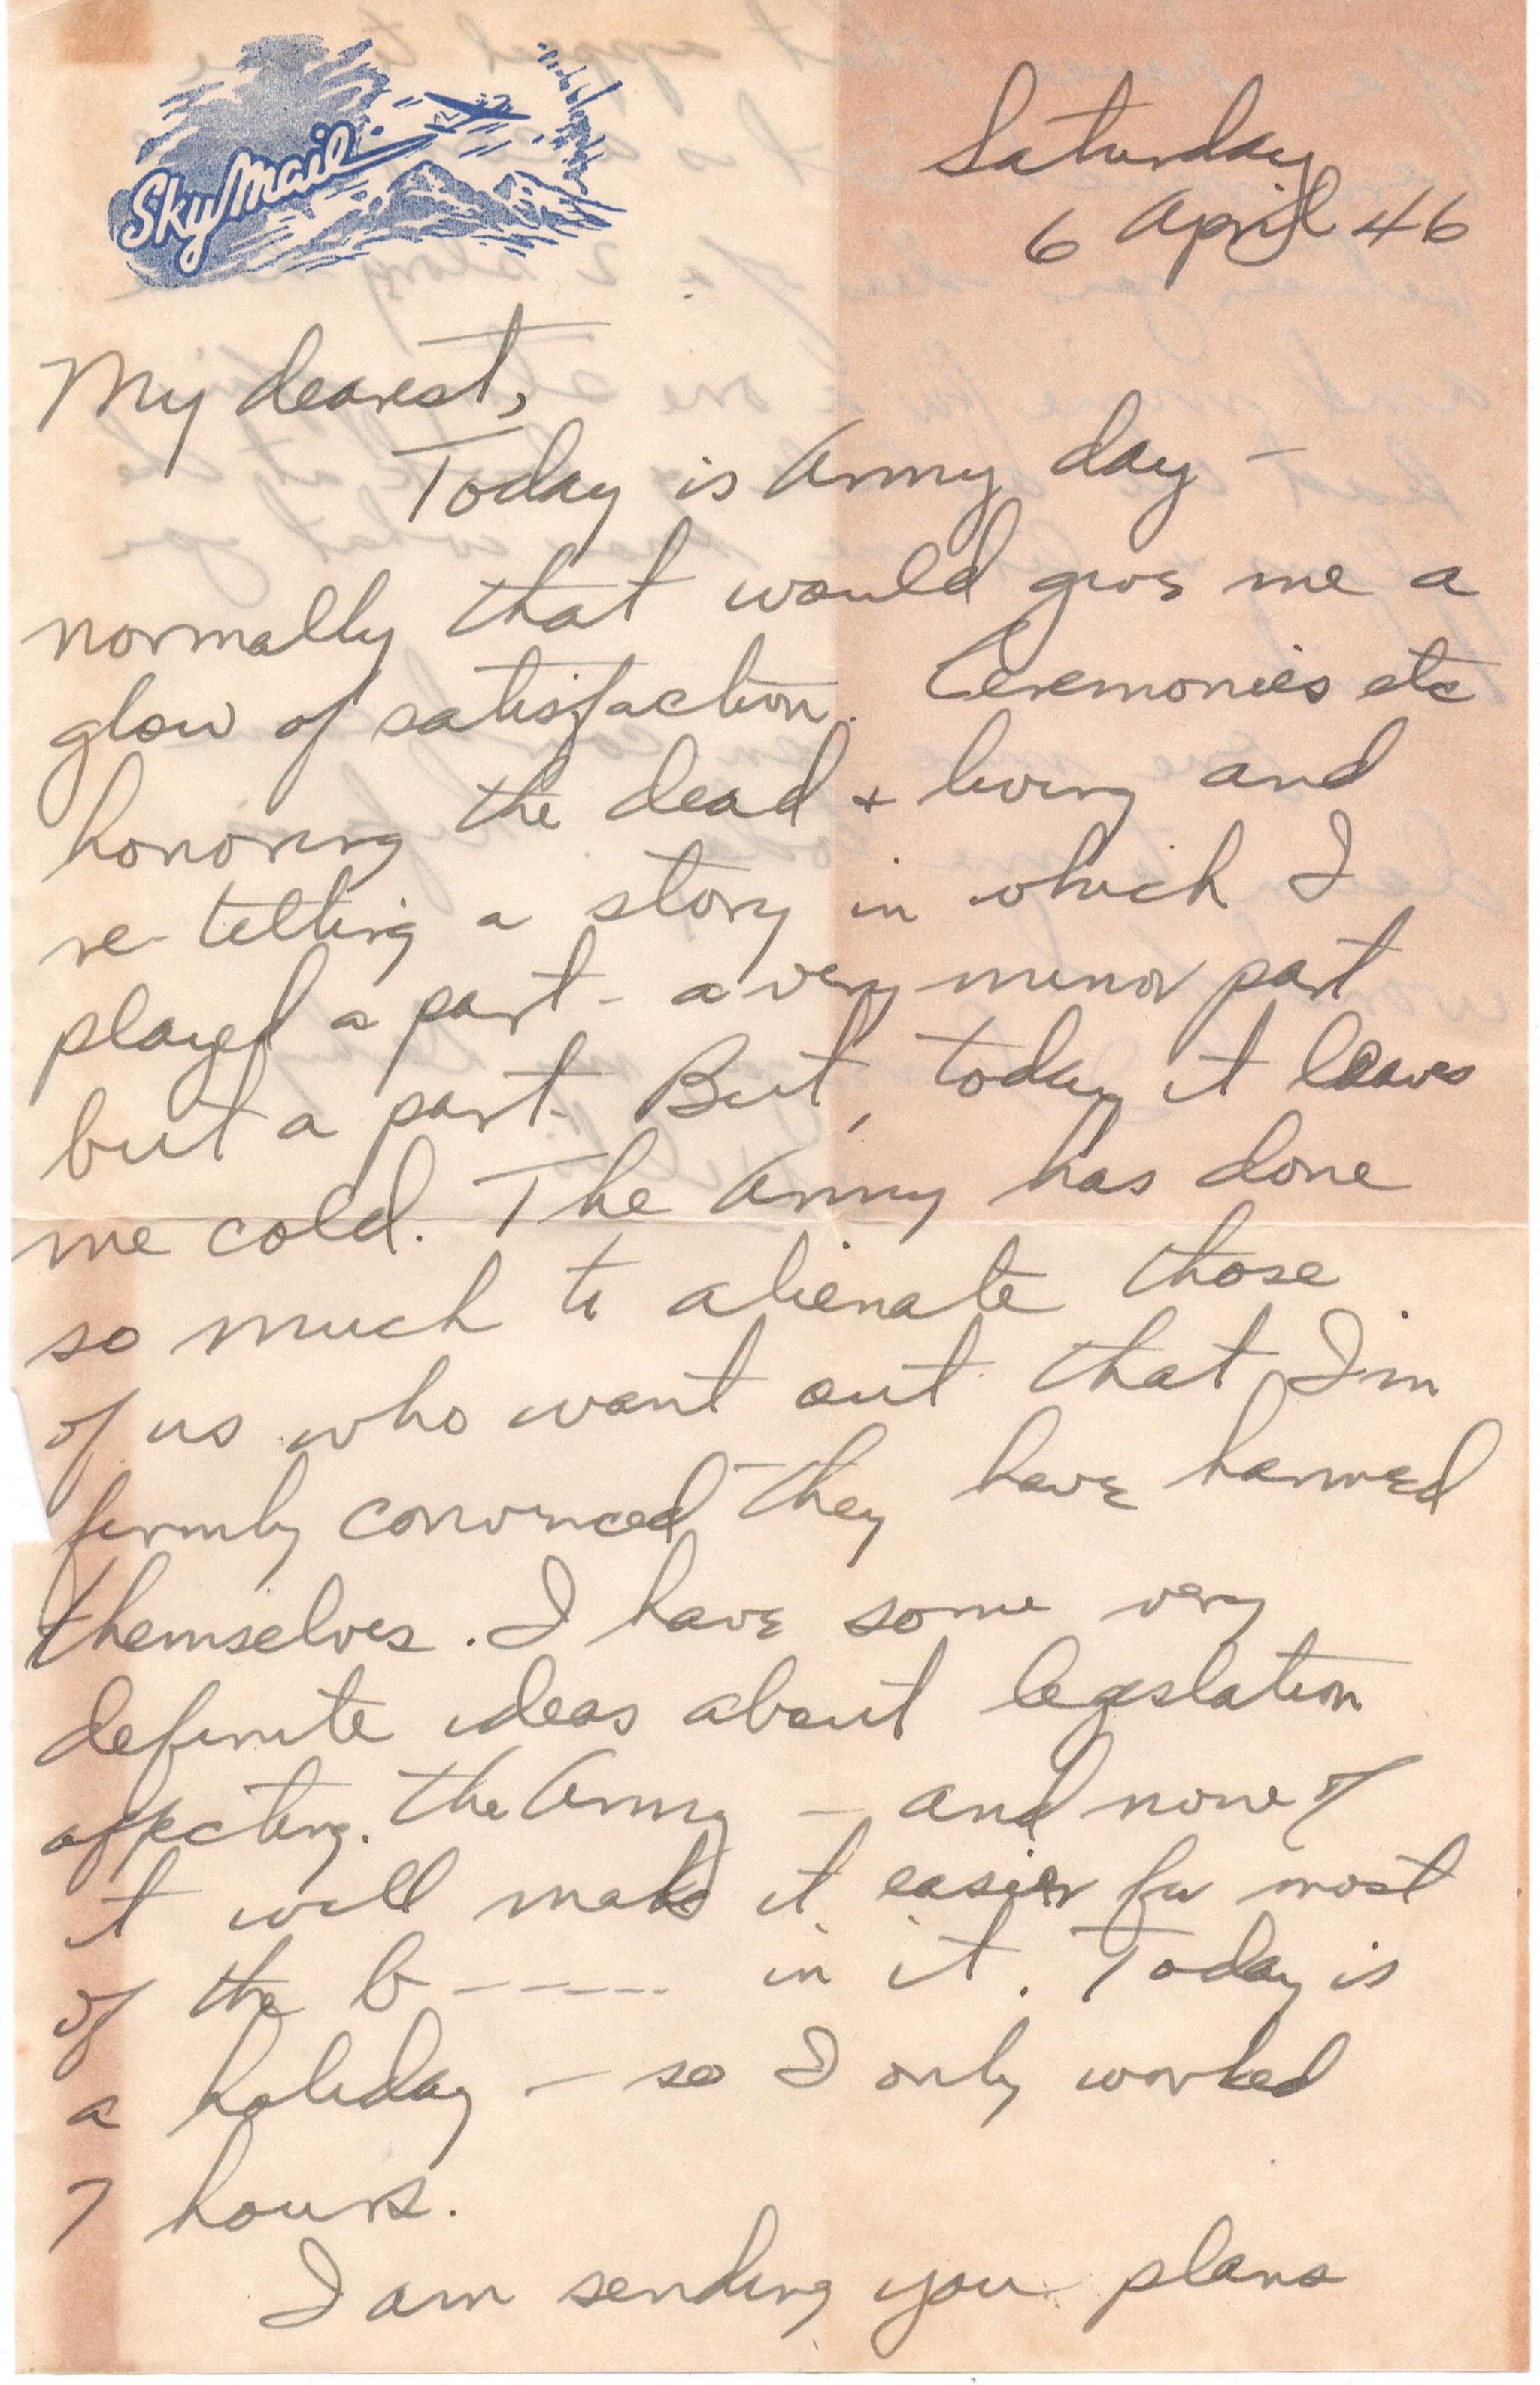 SkyMail
Saturday
6 April 46
My dearest,
Today is Army day -
normally that would give me a
glow of satisfaction. Ceremonies etc
honoring the dead + living and
re-telling a story in which I
played a part - a very minor part
but a part - But, today it leaves
me cold. The Army has done
so much to alienate those
of us who want out that I'm
firmly convinced they have harmed
themselves. I have some very
definite ideas about legislation
affecting. the Army - and none of
it will make it easier for most
of the b----- in it. Today is
a holiday - so I only worked
7 hours.
I am sending you plans